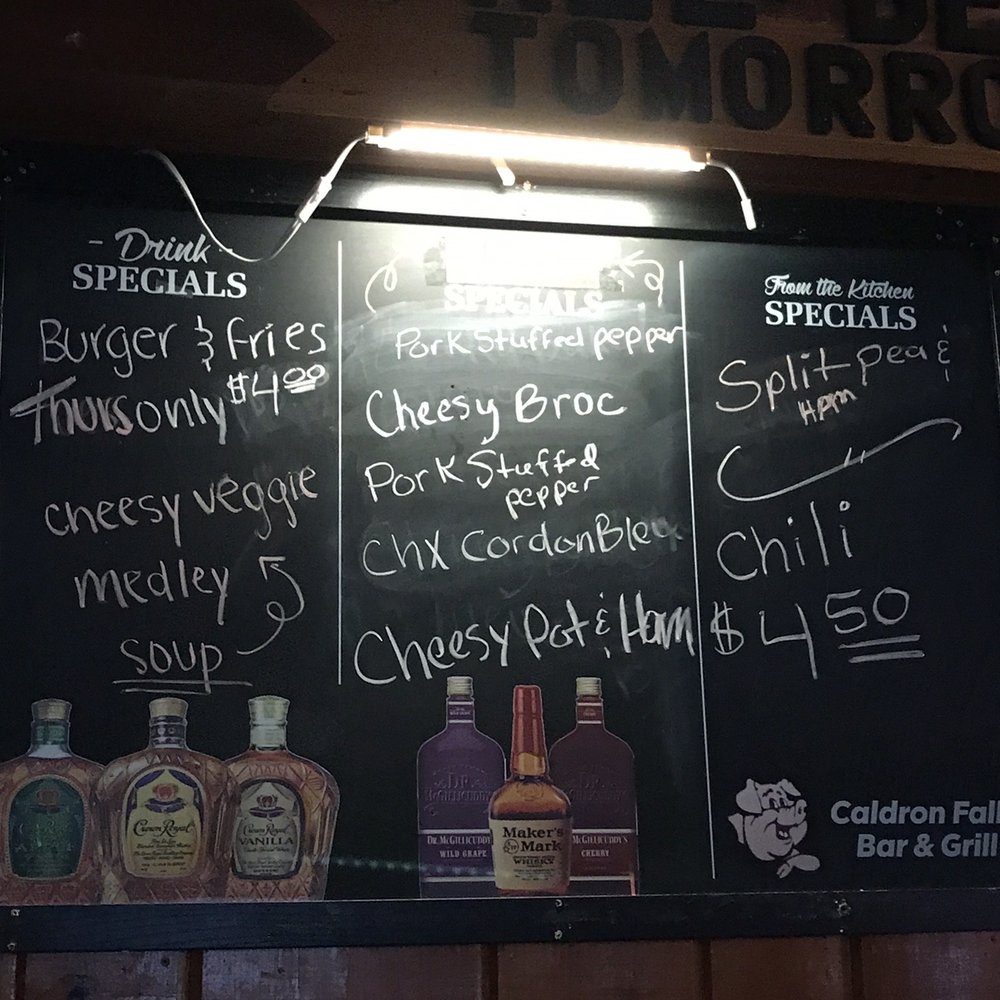 TOMORRO
- Drink
SPECIALS
Burger & Fries
Thurs only $4.00
cheesy veggie
medley
soup
SPECIALS
Pork Stuffed pepper
Cheesy Broc
Pork Stuffed
pepper
Chx Cordon Bleu
Cheesy Pot & Ham
From the Kitchen
SPECIALS
Split pea &
Hpm
Chili
$4.50
Crown Royal
Crown Royal
VANILLA
DR. MCGILLICUDDY
DR. MCGILLICUDDY'S
WILD GRAPE
Maker's
Mark
WHISKY
MCGILLICUDDY'S
CHERRY
Caldron Fall
Bar & Grill